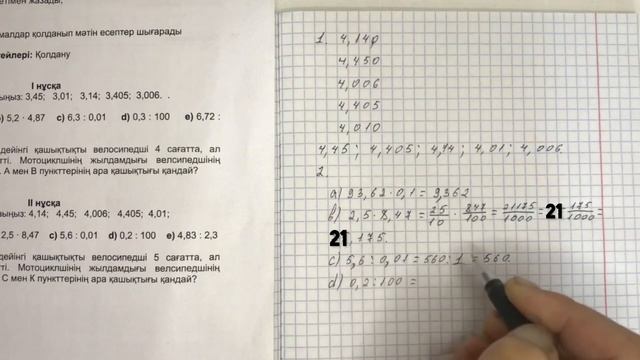 етімен жазады,
малдар қолданып мәтін есептер шығарады
тейлері: Қолдану
I нұсқа
ыңыз: 3,45; 3,01; 3,14; 3,405; 3,006. .
) 5,2 · 4,87 c) 6,3 : 0,01 d) 0,3 : 100 e) 6,72 :
дейінгі қашықтықты велосипедші 4 сағатта, ал
тті. Мотоциклшінің жылдамдығы велсипедшінің
. А мен В пункттерінің ара қашықтығы қандай?
II нұсқа
ыңыз: 4,14; 4,45; 4,006; 4,405; 4,01;
2,5 · 8,47 c) 5,6 : 0,01 d) 0,2 : 100 e) 4,83 : 2,3
дейінгі қашықтықты велосипедші 5 сағатта, ал
тті. Мотоциклшінің жылдамдығы велсипедшінің
С мен К пункттерінің ара қашықтығы қандай?
1. 4,140
4,450
4,006
4,405
4,010
4,45; 4,405; 4,14; 4,01; 4,006.
2.
a) 93,62 · 0,1 = 9,362
b) 2,5 · 8,47 = 25/10 · 847/100 = 21175/1000 = 21 175/1000 =
21,175.
c) 5,6 : 0,01 = 560 : 1 = 560.
d) 0,2 : 100 =